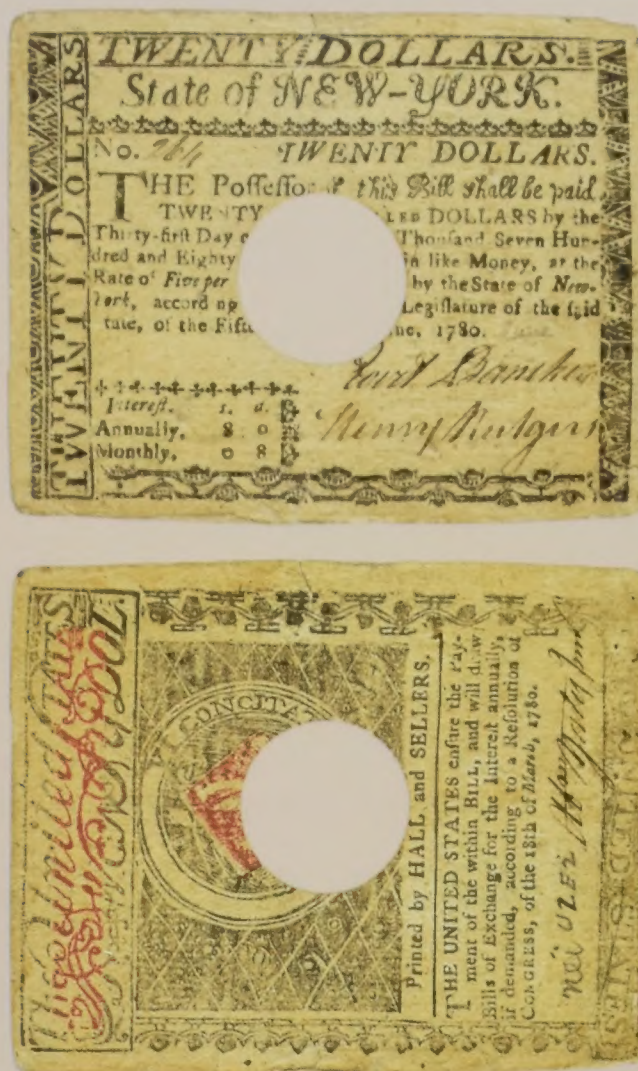 TWENTY DOLLARS
TWENTY DOLLARS.
State of NEW-YORK.
No. 264 TWENTY DOLLARS.
THE Poſſeſſor of this Bill ſhall be paid
TWENTY DOLLARS by the
Thirty-firſt Day Thouſand Seven Hun-
dred and Eighty in like Money, at the
Rate of Five per by the State of New-
York, according Legiſlature of the ſaid
tate, of the Fift 1780.
Intereſt. s. d.
Annually, 8 0
Monthly, 0 8
Henry Rutgers
The United STATES
DOL.
CONCITA
Printed by HALL and SELLERS.
THE UNITED STATES enſure the Pay-
ment of the within BILL, and will draw
Bills of Exchange for the Intereſt annually,
if demanded, according to a Reſolution of
CONGRESS, of the 18th of March, 1780.